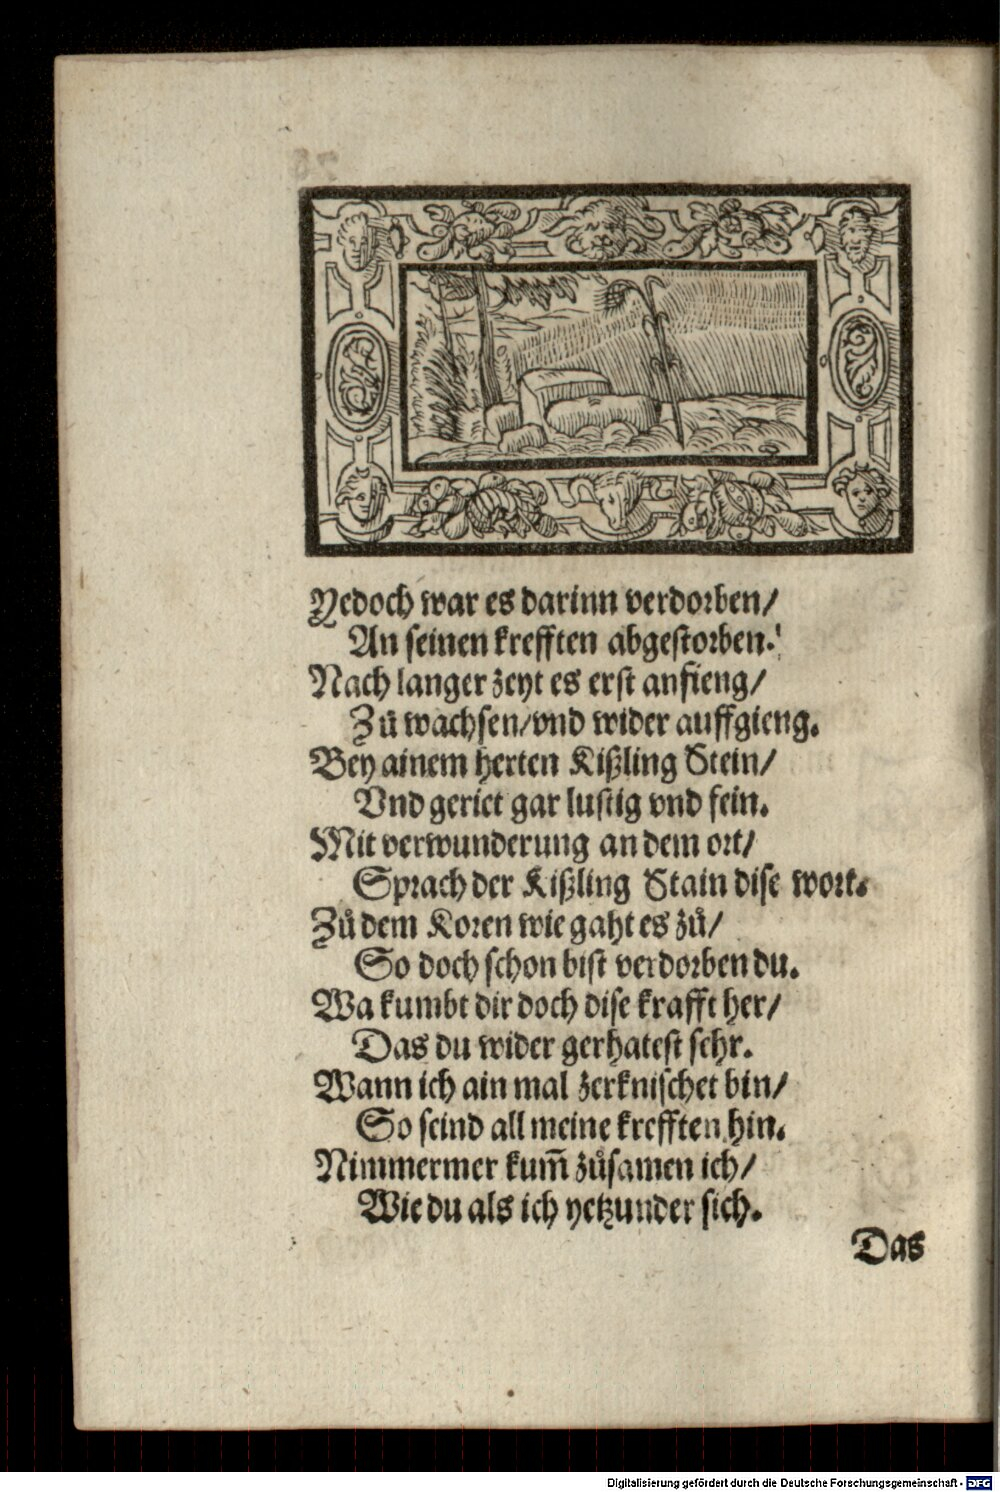 Yedoch war es darinn verdorben/
An seinen krefften abgestorben.
Nach langer zeyt es erst anfieng/
Zů wachsen/vnd wider auffgieng.
Bey ainem herten Kißling Stein/
Vnd geriet gar lustig vnd fein.
Mit verwunderung an dem ort/
Sprach der Kißling Stain dise wort.
Zů dem Koren wie gaht es zů/
So doch schon bist verdorben du.
Wa kumbt dir doch dise krafft her/
Das du wider gerhatest sehr.
Wann ich ain mal zerknischet bin/
So seind all meine krefften hin.
Nimmermer kum̃ zůsamen ich/
Wie du als ich yetzunder sich.
Das
Digitalisierung gefördert durch die Deutsche Forschungsgemeinschaft - DFG